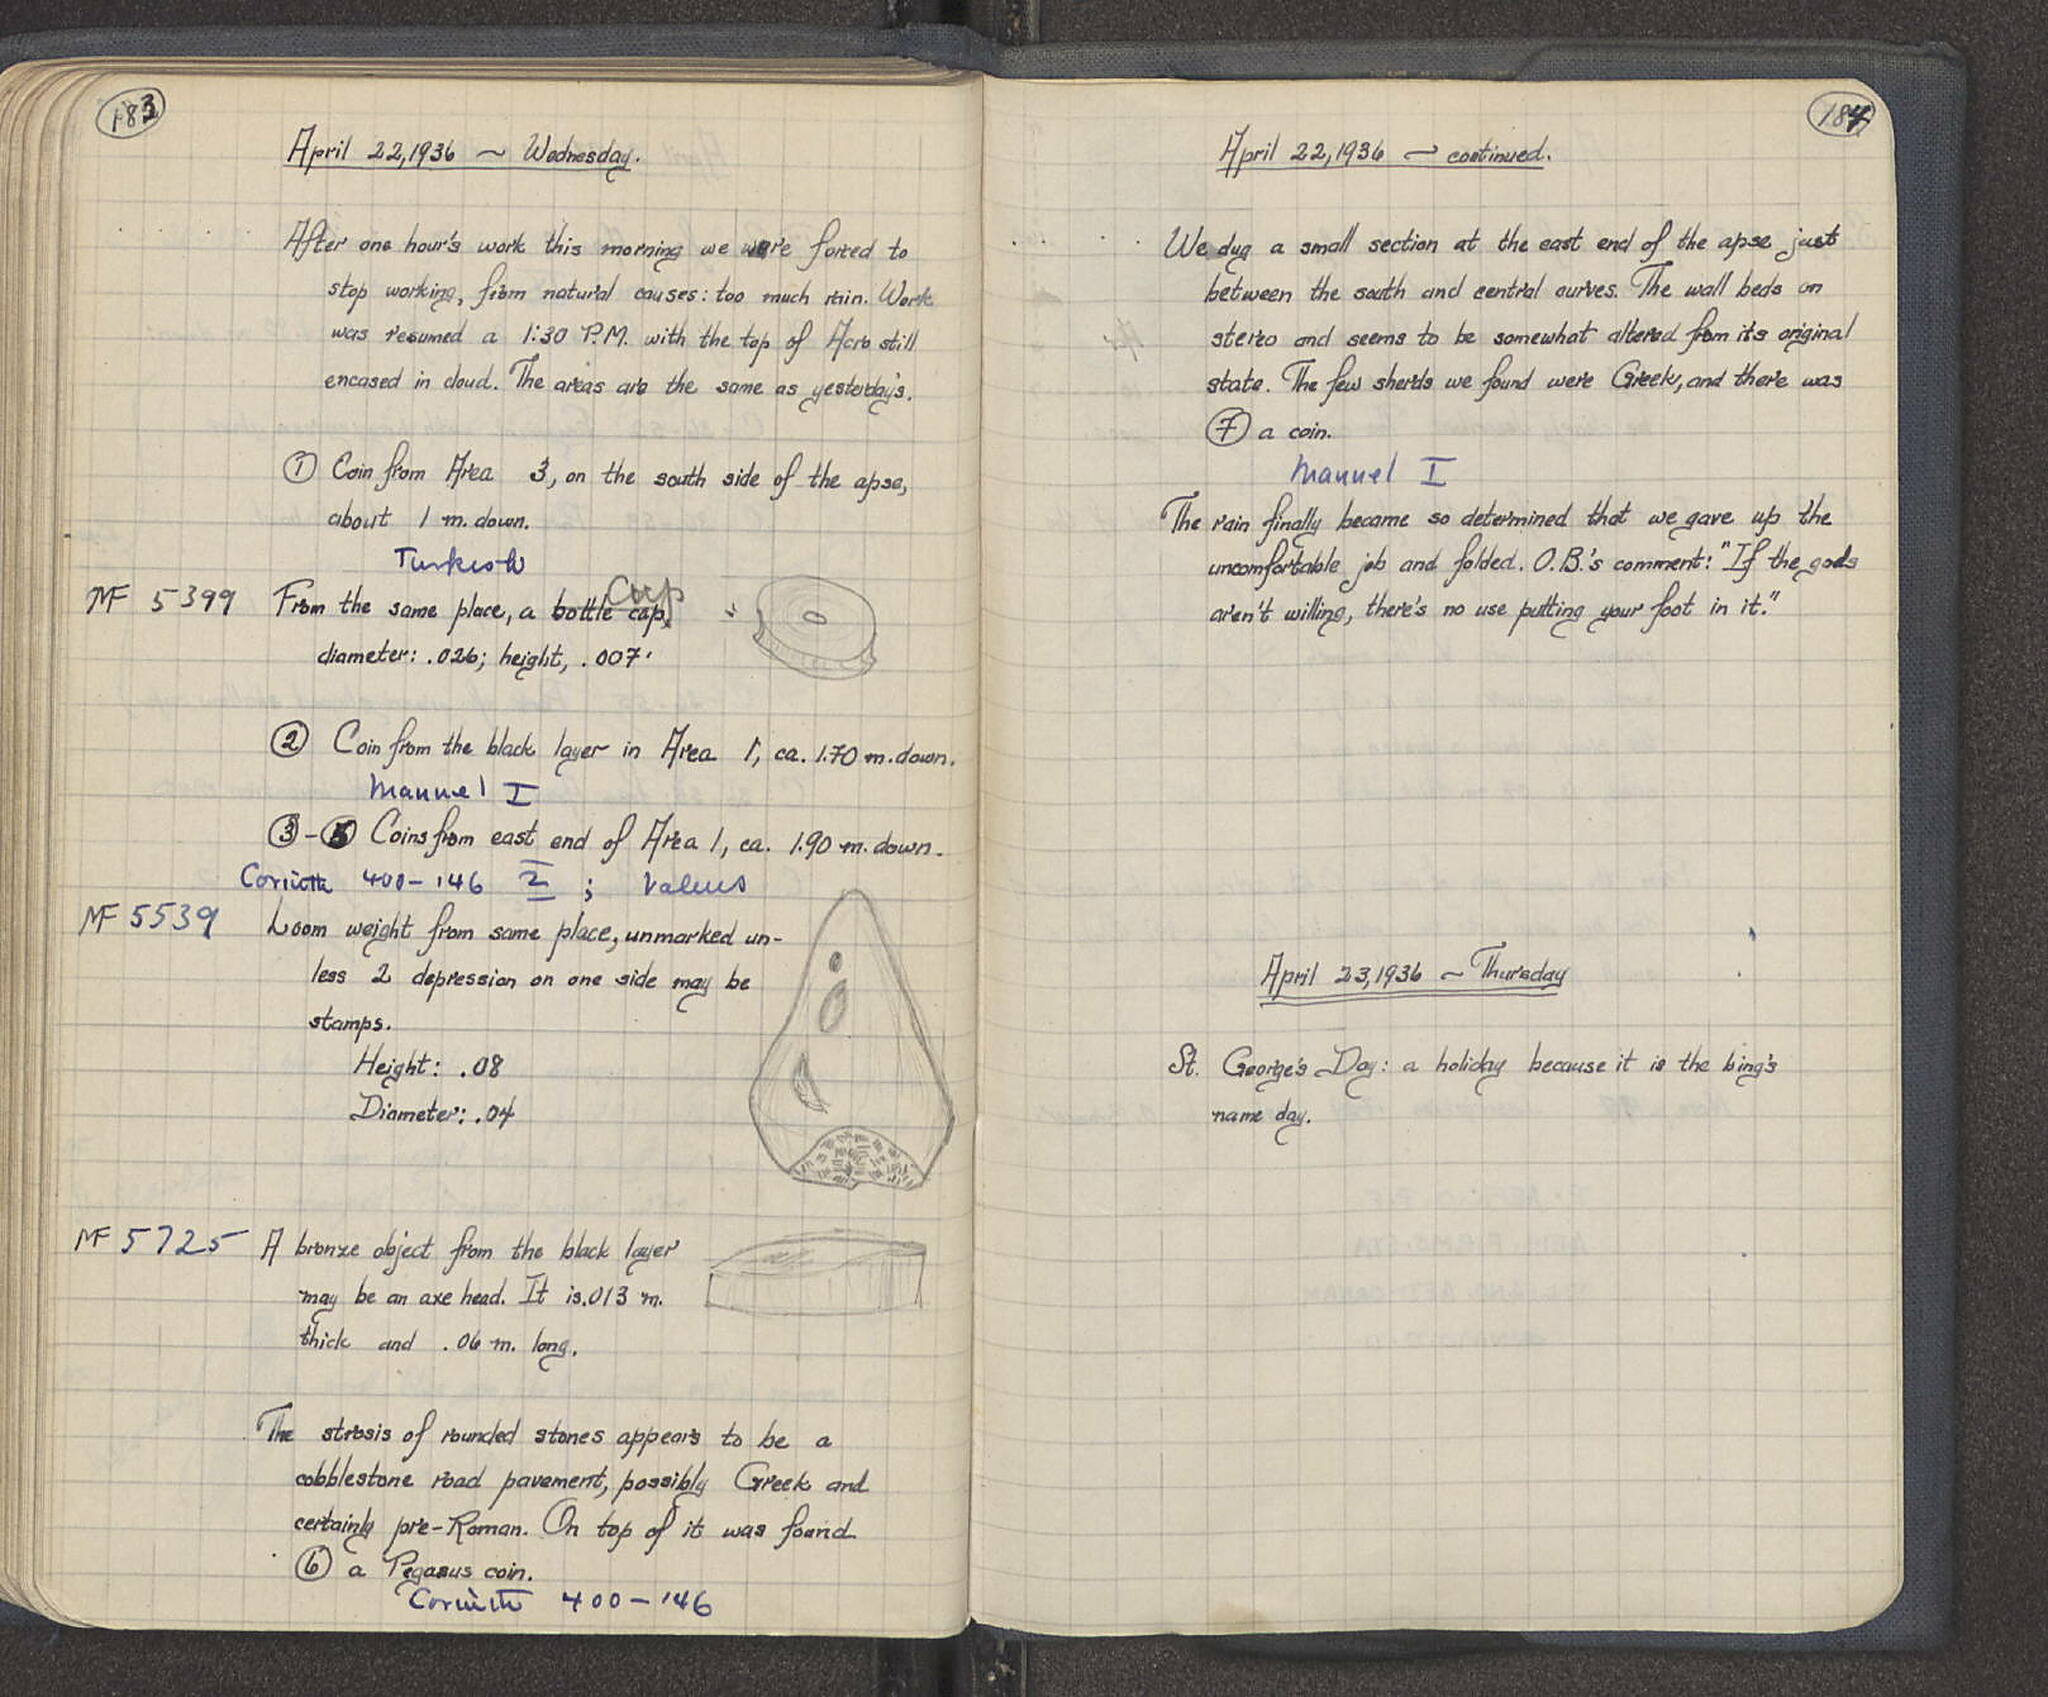 183
April 22, 1936 ~ Wednesday.
After one hour's work this morning we were forced to
stop working, from natural causes: too much rain. Work
was resumed a 1:30 P.M. with the top of Acro still
encased in cloud. The areas are the same as yesterday's.
① Coin from Area 3, on the south side of the apse,
about 1 m. down.
Turkish
Cap
MF 5399 From the same place, a bottle cap,
diameter: .026; height, .007.
② Coin from the black layer in Area 1, ca. 1.70 m. down.
Manuel I
③-⑤ Coins from east end of Area 1, ca. 1.90 m. down.
Corinth 400-146 2 ; Valens
MF 5539 Loom weight from same place, unmarked un-
less 2 depression on one side may be
stamps.
Height: .08
Diameter: .04
MF 5725 A bronze object from the black layer
may be an axe head. It is .013 m.
thick and .06 m. long.
The strosis of rounded stones appears to be a
cobblestone road pavement, possibly Greek and
certainly pre-Roman. On top of it was found
⑥ a Pegasus coin.
Corinth 400-146
184
April 22, 1936 ~ continued.
We dug a small section at the east end of the apse just
between the south and central curves. The wall beds on
stereo and seems to be somewhat altered from its original
state. The few sherds we found were Greek, and there was
⑦ a coin.
Manuel I
The rain finally became so determined that we gave up the
uncomfortable job and folded. O.B.'s comment: "If the gods
aren't willing, there's no use putting your foot in it."
April 23, 1936 ~ Thursday
St. George's Day: a holiday because it is the king's
name day.